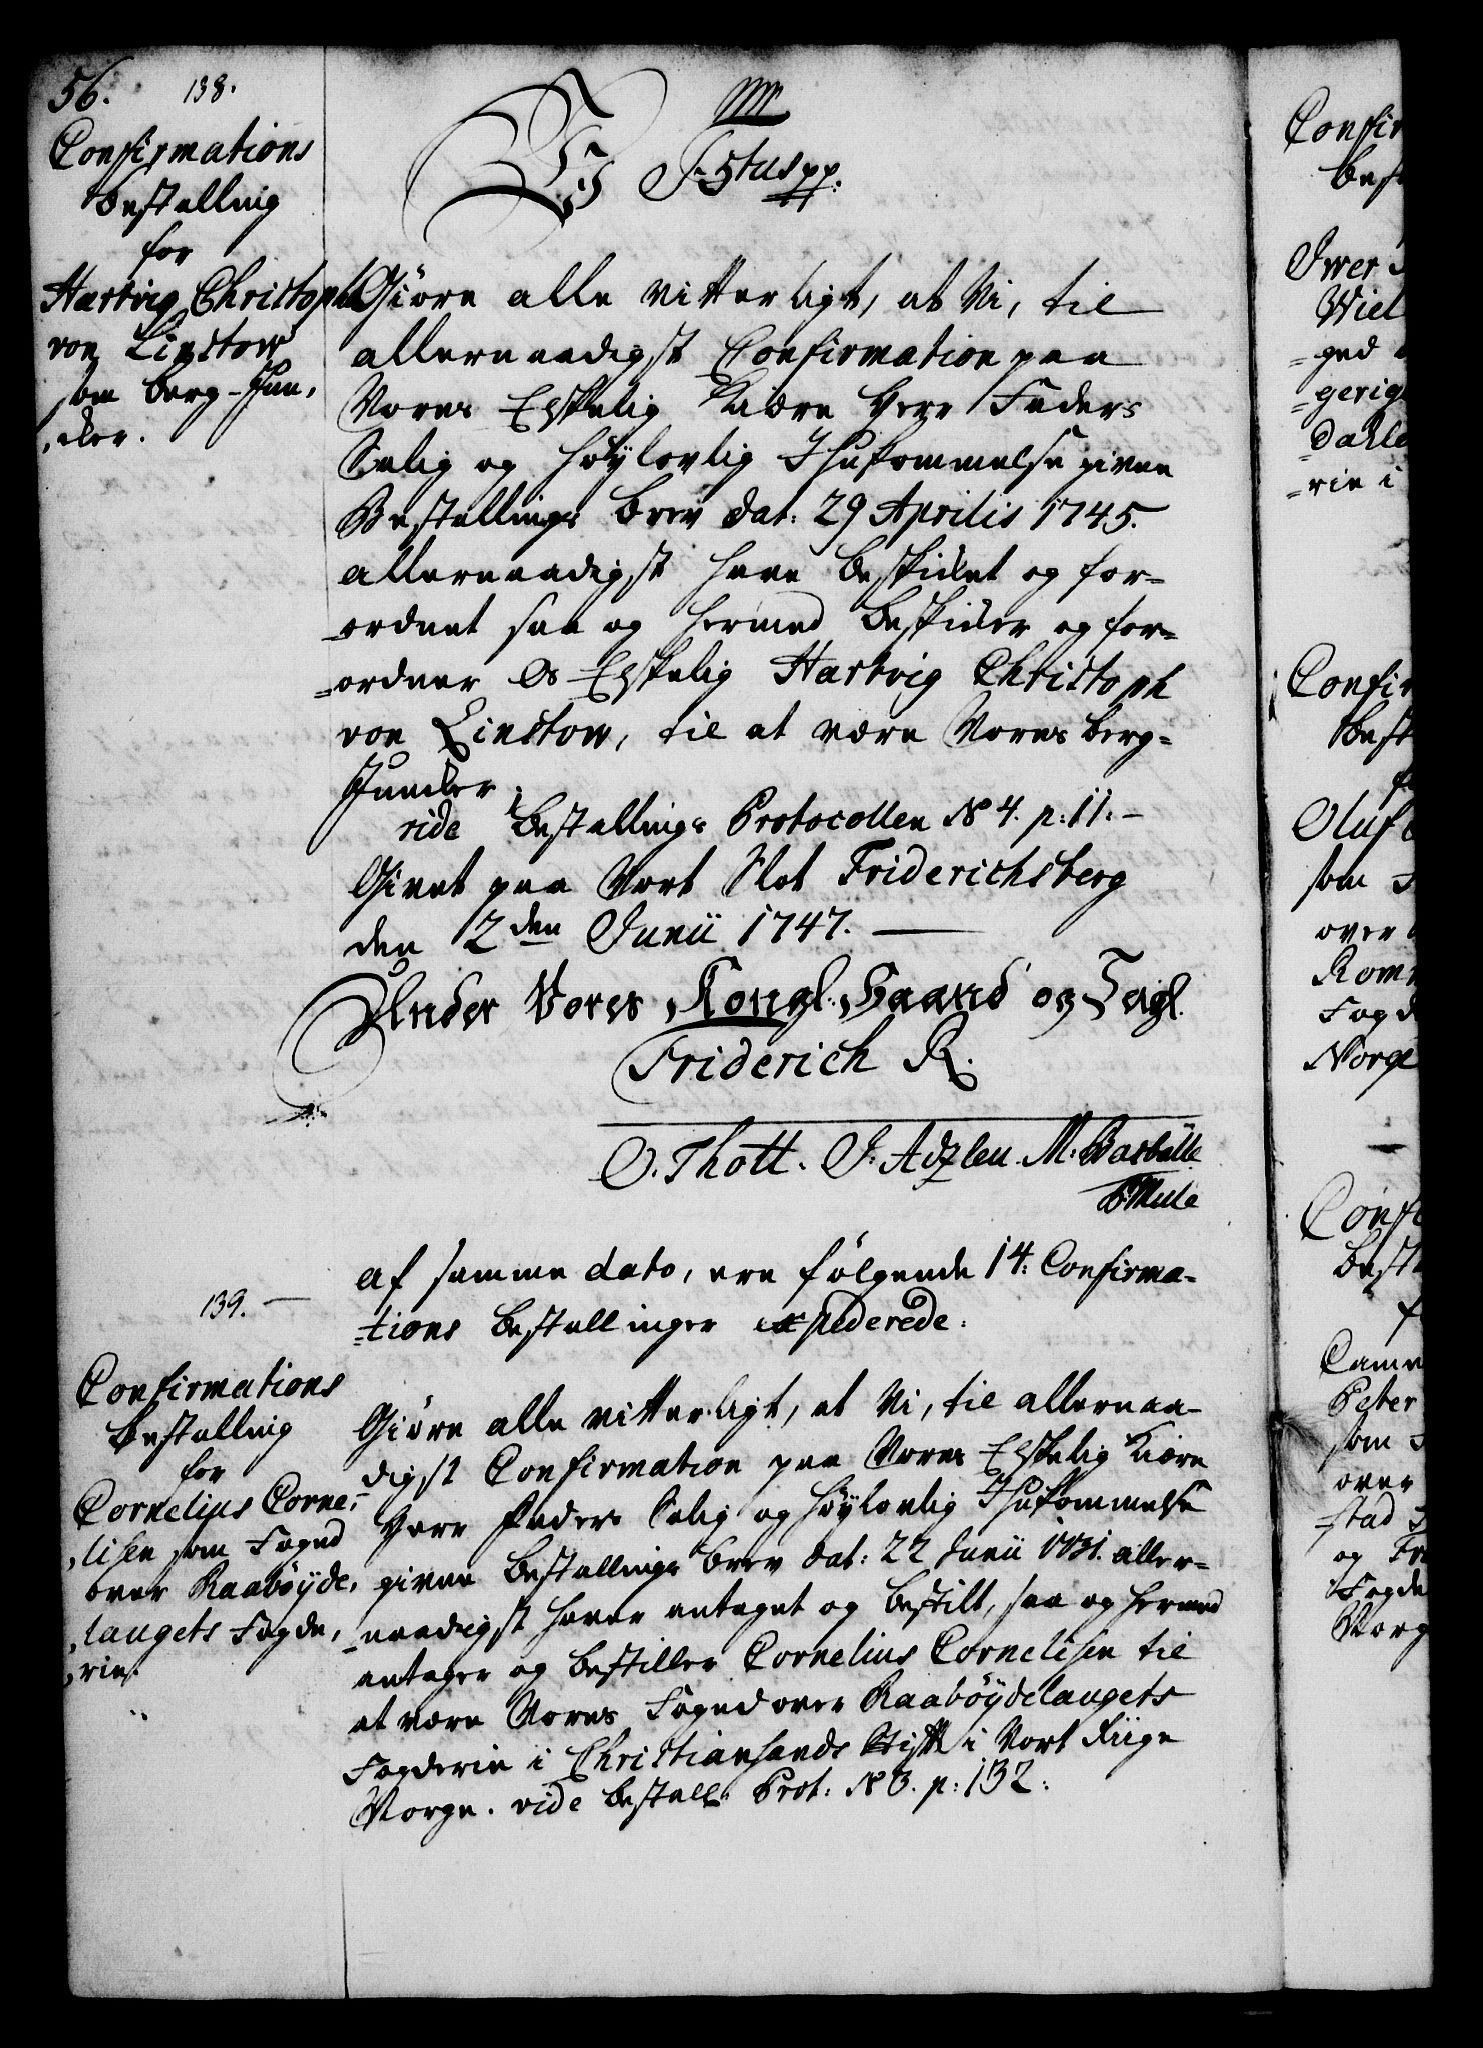 56. 138.
Confirmations
Bestalling
for
Hartvig Christoph
von Linstow
som Berg-Jun,
,cker.
Wi F 5tus pp.
Giöre alle vitterligt, at Vi, til
allernaadigst Confirmation paa
Vores Elskelig Kiære Herr Faders
Salig og Høylovlig Ihukommelse given
Bestallings Brev dat: 29 Aprilis 1745.
allernaadigst have beskiket og for-
-ordnet saa og hermed beskiker og for-
-ordner Os Elskelig Hartvig Christoph
von Linstow, til at være Vores Berg-
Juncker.
vide Bestallings Protocollen No 4. p: 11. -
Givet paa Vort Slot Friderichsberg
den 2den Junii 1747.
Under Vores Kongl. Haand og Seigl.
Friderich R.
O. Thott. J. Adzlen. M. Barbülle
Mule
af samme dato, ere følgende 14: Confirma-
-tions Bestallinger expederede:
139. -
Confirmations
Bestalling
for
Cornelius Corne,-
,lisen som Foged
over Raabøyde,
,laugets Fogde,
,rie.
Giöre alle vitterligt, at Vi, til allernaa-
digst Confirmation paa Vores Elskelig Kiære
Herr Faders Salig og Høylovlig Ihukommelse
given Bestallings Brev dat: 22 Junii 1731. aller-
-naadigst haver antaget og bestilt, saa og hermed
antager og bestiller Cornelius Cornelisen til
at være Vores Foged over Raabøydelaugets
Fogderie i Christiansands Stift i Vort Riige
Norge. vide Bestall: Prot: No 3. p: 132:
Confir
Best
Iwer
Wiel
=ged
=gerig
=Dahle
=rie i
Confir
Best
Oluf
som
over
Rom
Foged
Norge
Conf
Best
f
Came
Peter
som
over
-stad
og Fre
Fogde
Norg